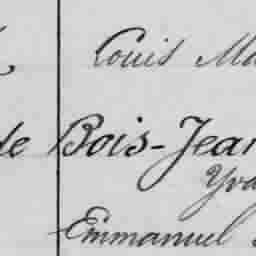 Louis Ma
de Bois-Jean
Yva
Emmanuel